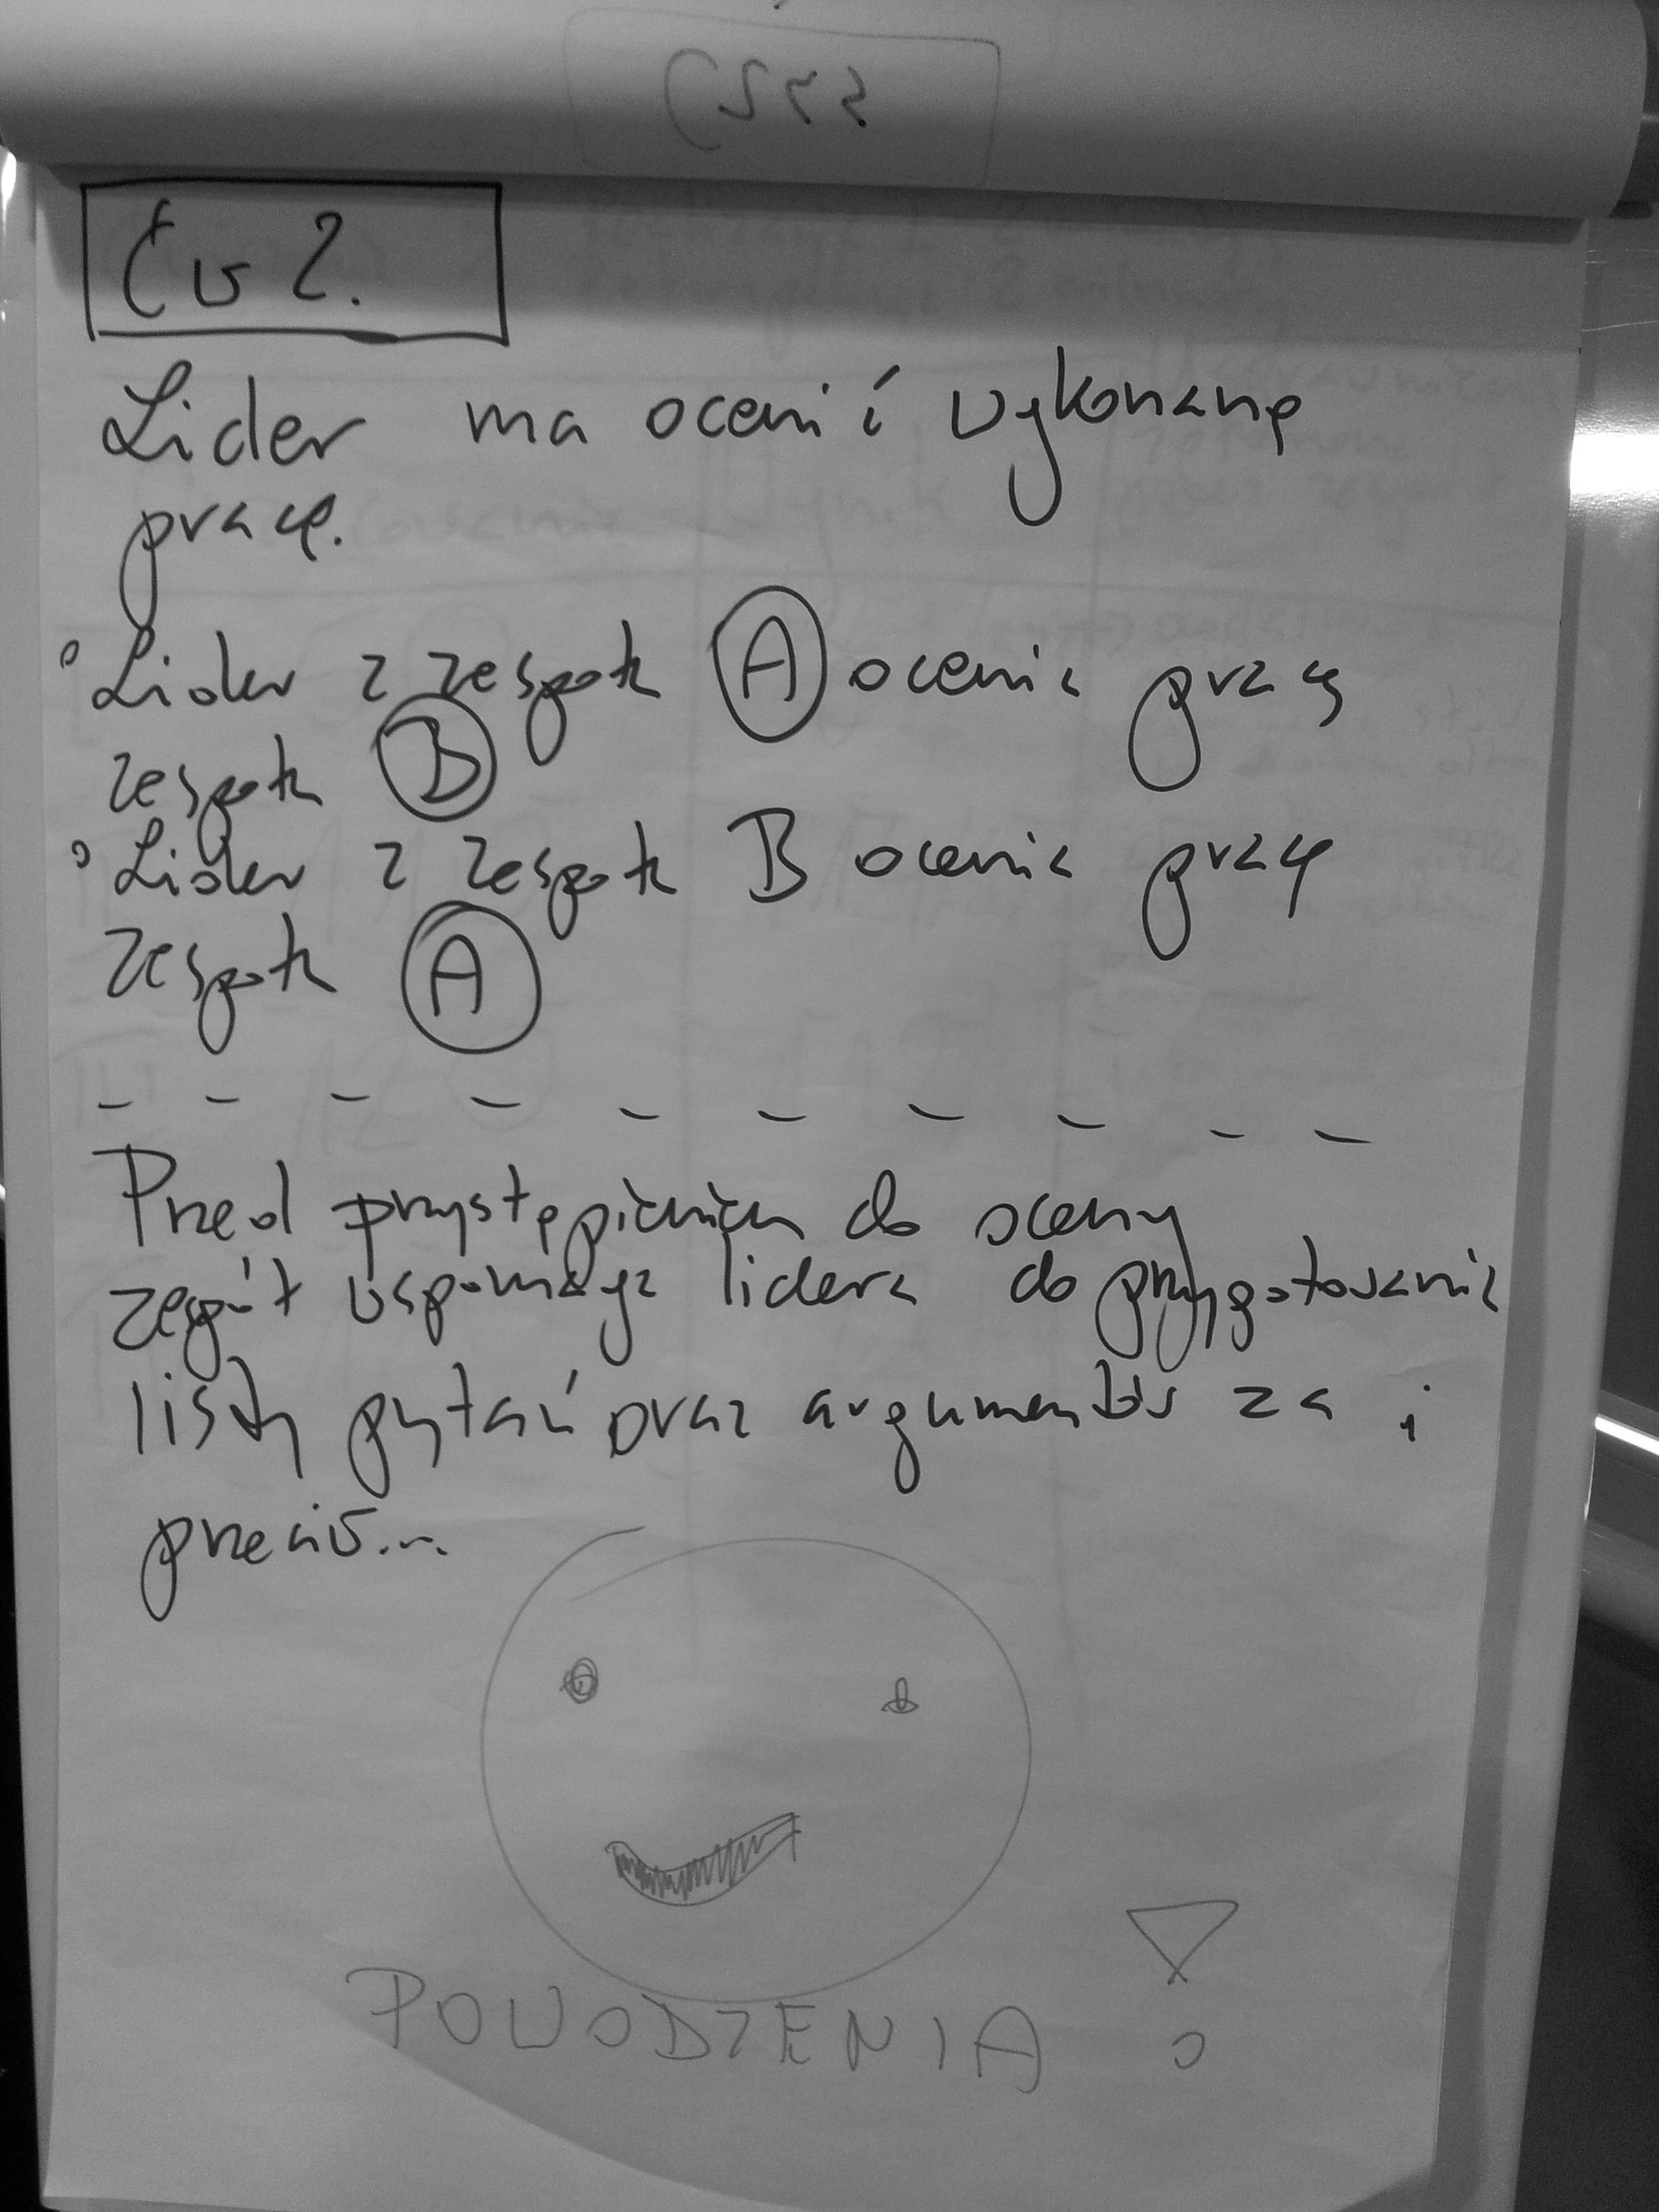 Ćw 2.
Lider ma ocenić wykonaną
pracę.
Lider z zespołu A ocenia pracę
zespołu B
Lider z zespołu B ocenia pracę
zespołu A
Przed przystąpieniem do oceny
zespół wspomaga lidera do przygotowania
listy pytań oraz argumentów za i
przeciw...
POWODZENIA !